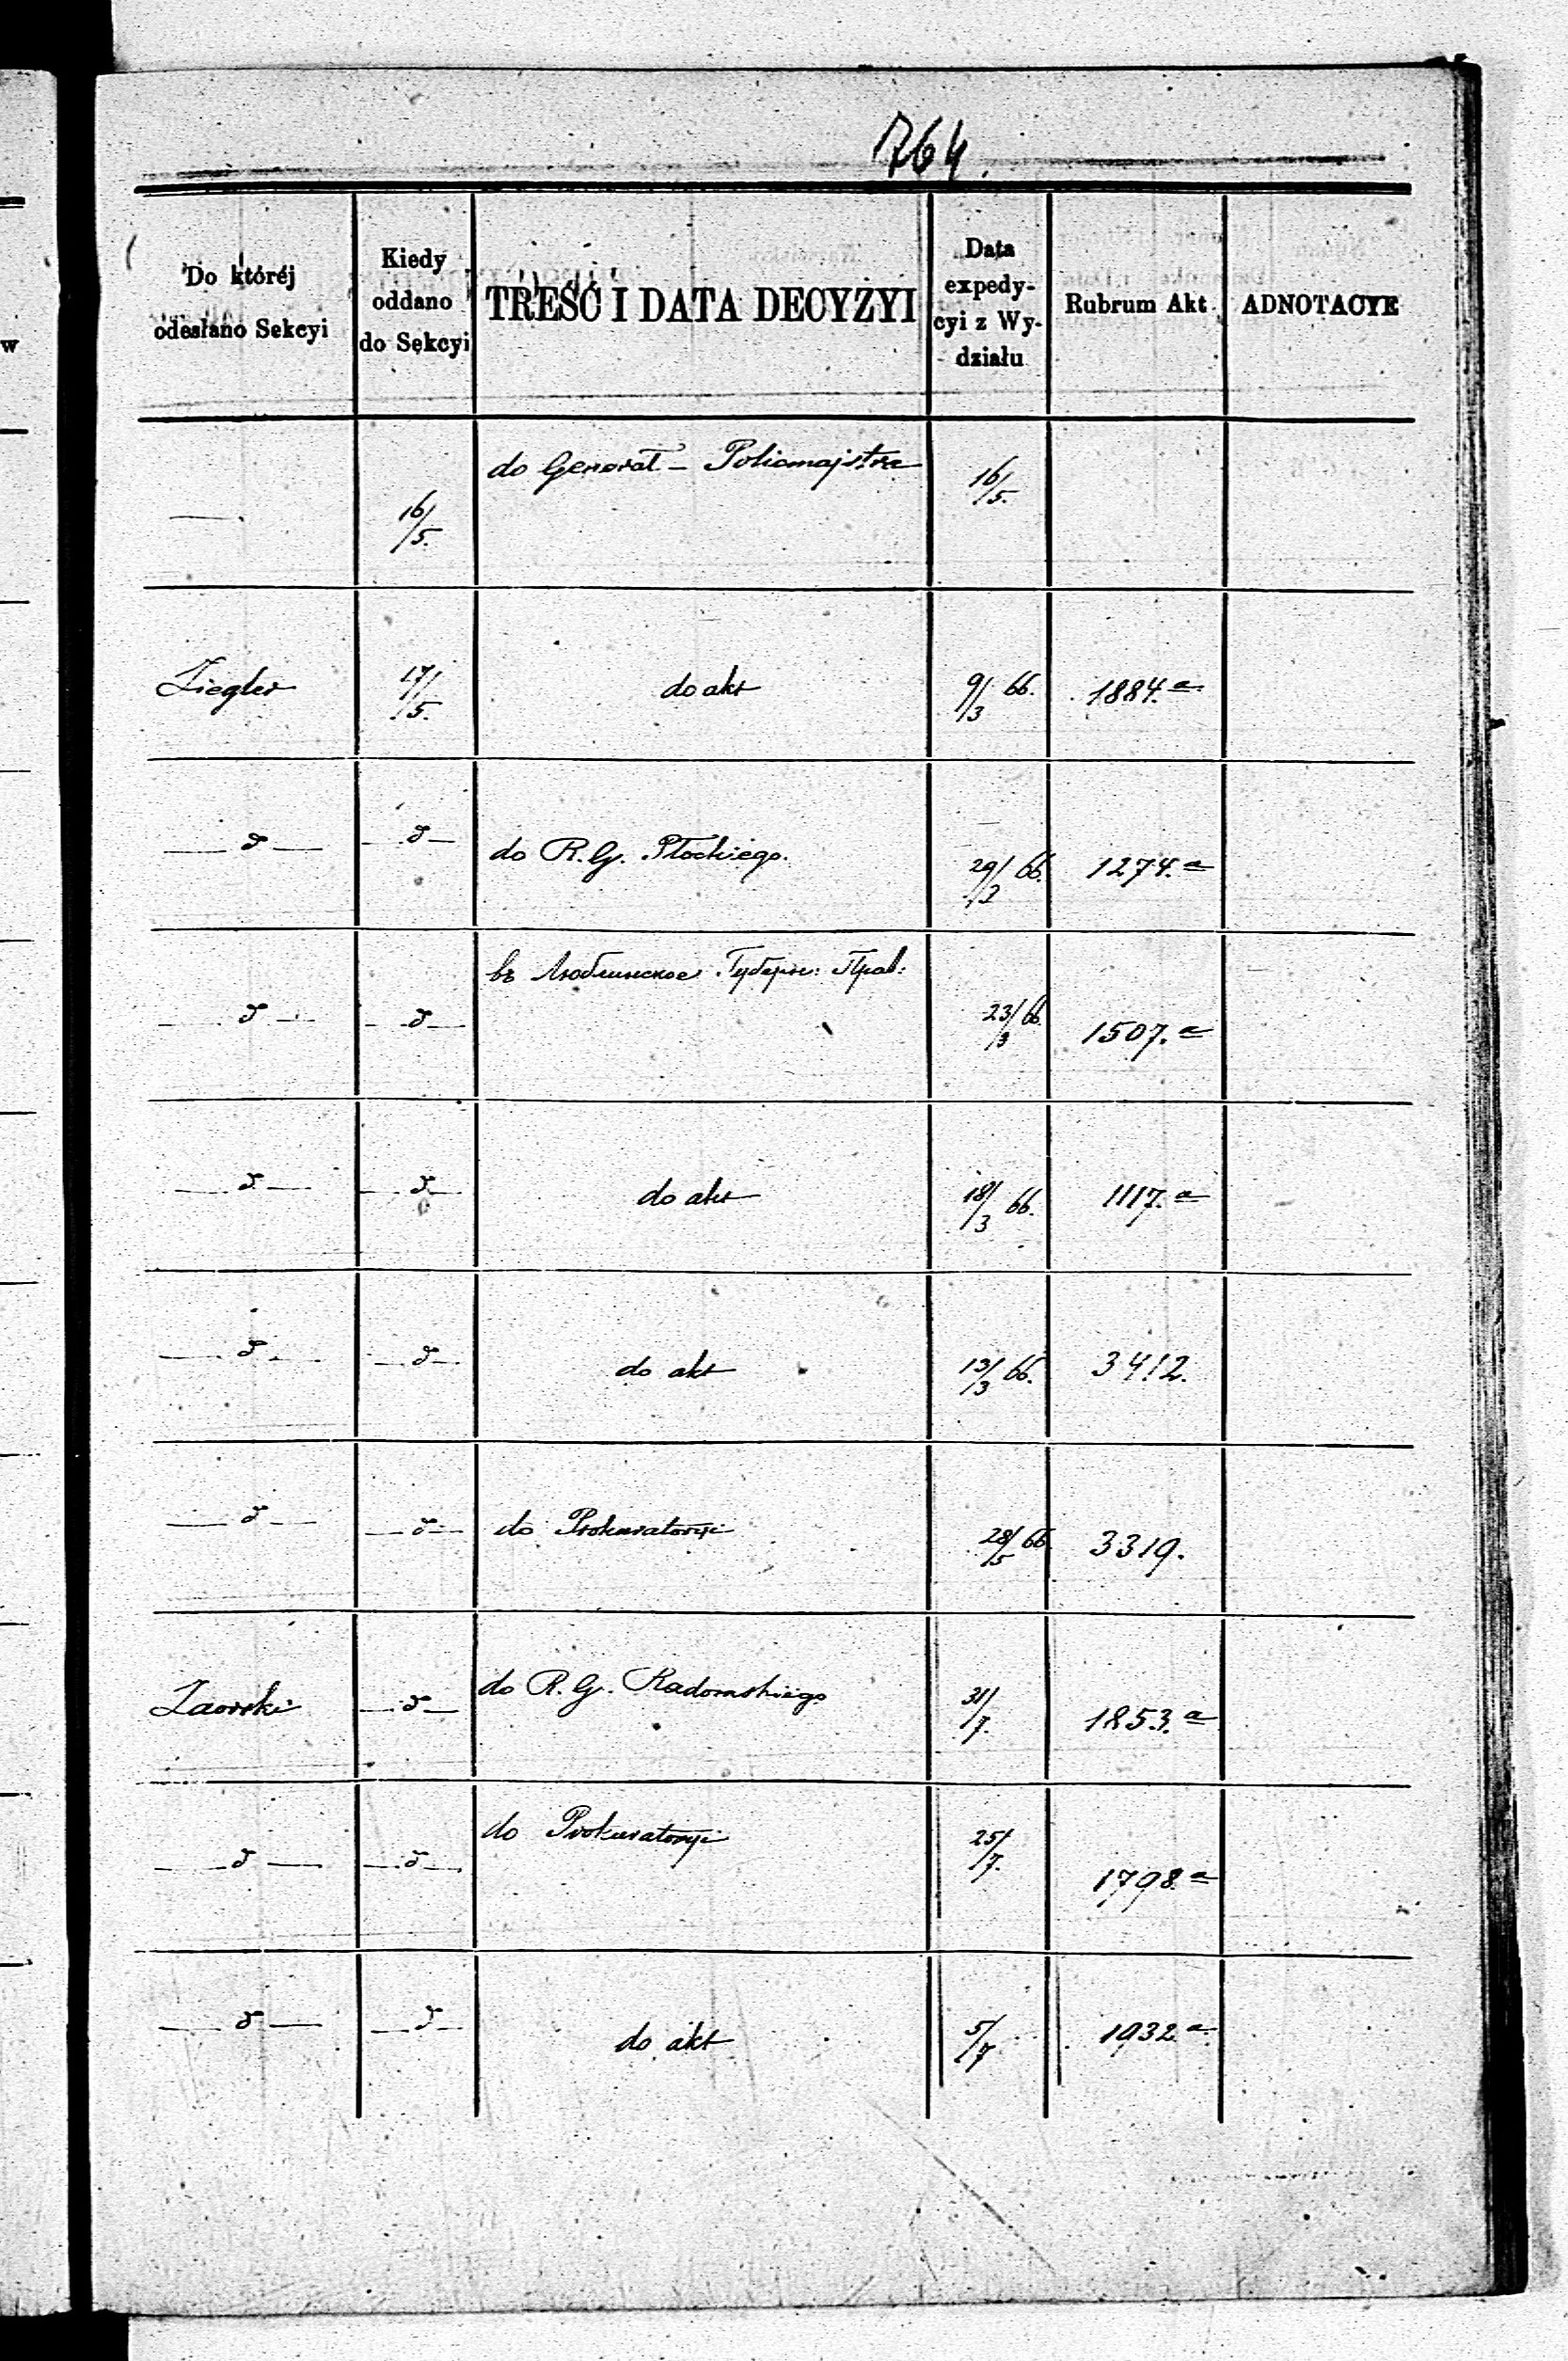 764.
Do któréj odesłano Sekcyi | Kiedy oddano do Sekcyi | TREŚĆ I DATA DECYZYI | Data expedycyi z Wydziału | Rubrum Akt | ADNOTACYE
— | 16/5. | do Generał-Policmajstra | 16/5.
Ziegler | 17/5. | do akt | 9/3 66. | 1884.a
—d— | —d— | do R. G. Płockiego. | 29/2 66. | 1274.a
—d— | —d— | въ Люблинское Губерн: Прав: | 23/3 66. | 1507.a
—d— | —d— | do akt | 18/3 66. | 1117.a
—d— | —d— | do akt | 13/3 66. | 3412.
—d— | —d— | do Prokuratoryi | 28/5 66. | 3319.
Zaorski | —d— | do R. G. Radomskiego | 31/7. | 1853.a
—d— | —d— | do Prokuratoryi | 25/7. | 1798.a
—d— | —d— | do akt | 5/7 | 1932.a
w